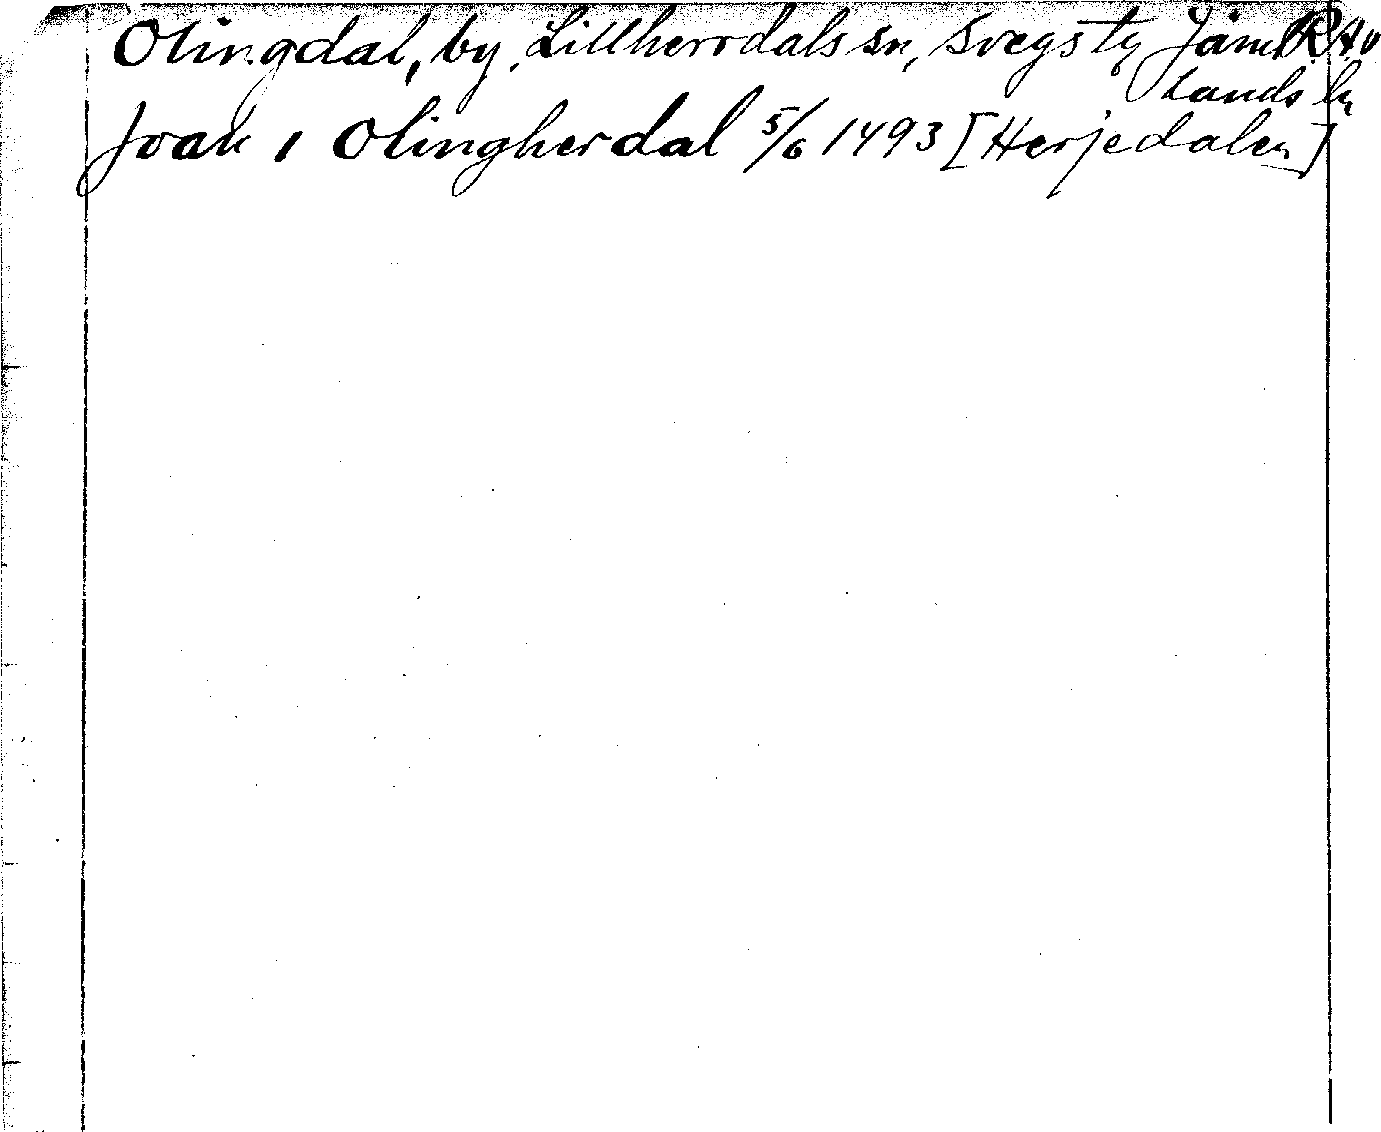 Olingdal, by, Lillherrdals sn, Svegs tg Jämt
lands ln
Joan i Olingherdal 5/6 1493 [Herjedalen]